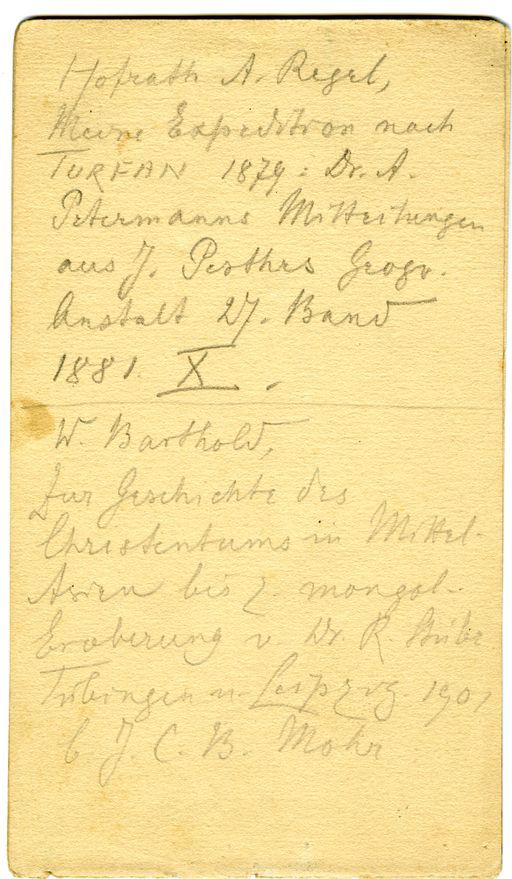 Hofrath A. Regel,
Meine Expedition nach
TURFAN 1879: Dr. A.
Petermanns Mitteilungen
aus J. Perthes Geogr.
Anstalt 27. Band
1881. X.
W. Barthold,
Zur Geschichte des
Christentums in Mittel-
Asien bis z. mongol.
Eroberung v. Dr. R. Stübe
Tübingen u. Leipzig. 1901
b. J. C. B. Mohr